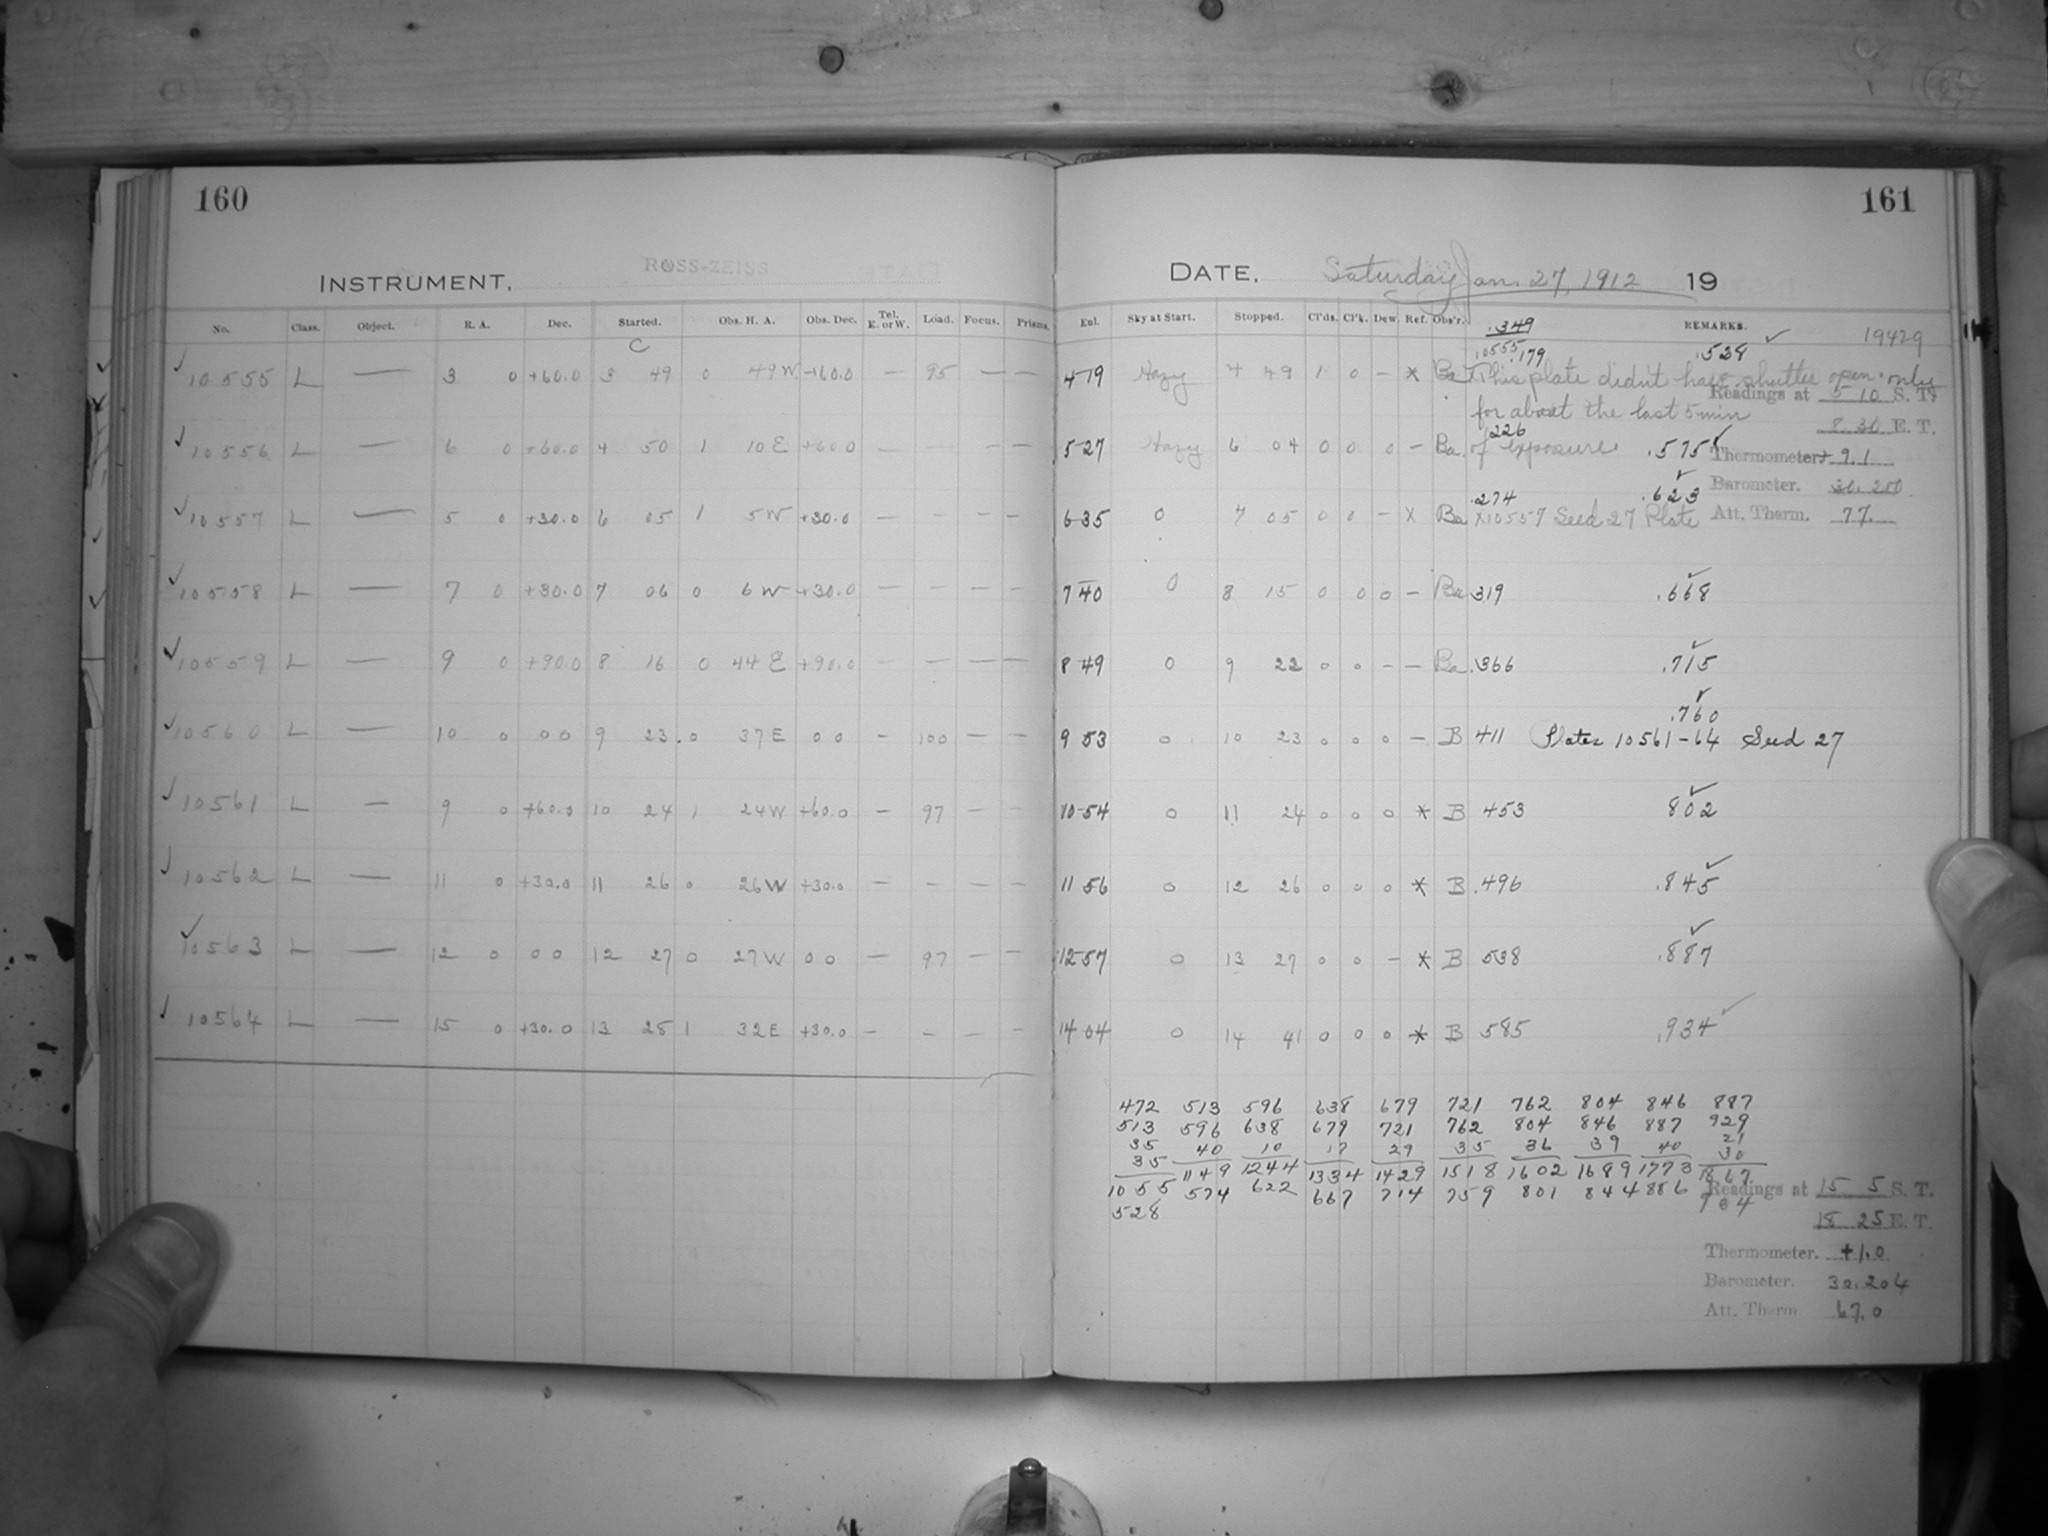 160
INSTRUMENT. ROSS-ZEISS
No. Class. Object. R. A. Dec. Started. Obs. H. A. Obs. Dec. Tel. E. or W. Load. Focus. Prisms.
C
10555 L — 3 0 +60.0 3 49 0 49 W +60.0 — 95 — —
10556 L — 6 0 +60.0 4 50 1 10 E +60.0 — — —
10557 L — 5 0 +30.0 6 05 1 5 W +30.0 — — — —
10558 L — 7 0 +30.0 7 06 0 6 W +30.0 — — — —
10559 L — 9 0 +90.0 8 16 0 44 E +90.0 — — — —
10560 L — 10 0 0 0 9 23 0 37 E 0 0 — 100 — —
10561 L — 9 0 +60.0 10 24 1 24 W +60.0 — 97 — —
10562 L — 11 0 +30.0 11 26 0 26 W +30.0 — — — —
10563 L — 12 0 0 0 12 27 0 27 W 0 0 — 97 — —
10564 L — 15 0 +30.0 13 28 1 32 E +30.0 — — — —
161
DATE. Saturday Jan. 27, 1912 19
Eul. Sky at Start. Stopped. Cl'ds. Cl'k. Dew. Ref. Obs'r. REMARKS.
.349 19429
10555 .179 .528
4 19 Hazy 4 49 1 0 — * Ba X This plate didnt have shutter open only
Readings at 5 10 S. T.
for about the last 5 min
8 30 E. T.
.226
5 27 Hazy 6 04 0 0 0 — Ba. of exposure. .575
Thermometer + 9.1
Barometer. 30.200
.274 .623
6 35 0 7 05 0 0 — X Ba X10557 Seed 27 Plate
Att. Therm. 77.
7 40 0 8 15 0 0 0 — Ba 319 .668
8 49 0 9 22 0 0 — — Ba .366 .715
.760
9 53 0 10 23 0 0 0 — B 411 Plates 10561-64 Seed 27
10 54 0 11 24 0 0 0 * B 453 802
11 56 0 12 26 0 0 0 * B .496 .845
12 57 0 13 27 0 0 — * B 538 .887
14 04 0 14 41 0 0 0 * B 585 .934
472 513 596 638 679 721 762 804 846 887
513 596 638 679 721 762 804 846 887 929
35 40 10 17 29 35 36 39 40 21
35 1149 1244 1334 1429 1518 1602 1689 1773 30
1055 574 622 667 714 759 801 844 886 1867
528
Readings at 15 5 S. T.
18 25 E. T.
Thermometer. +1.0
Barometer. 30.204
Att. Therm. 67.0